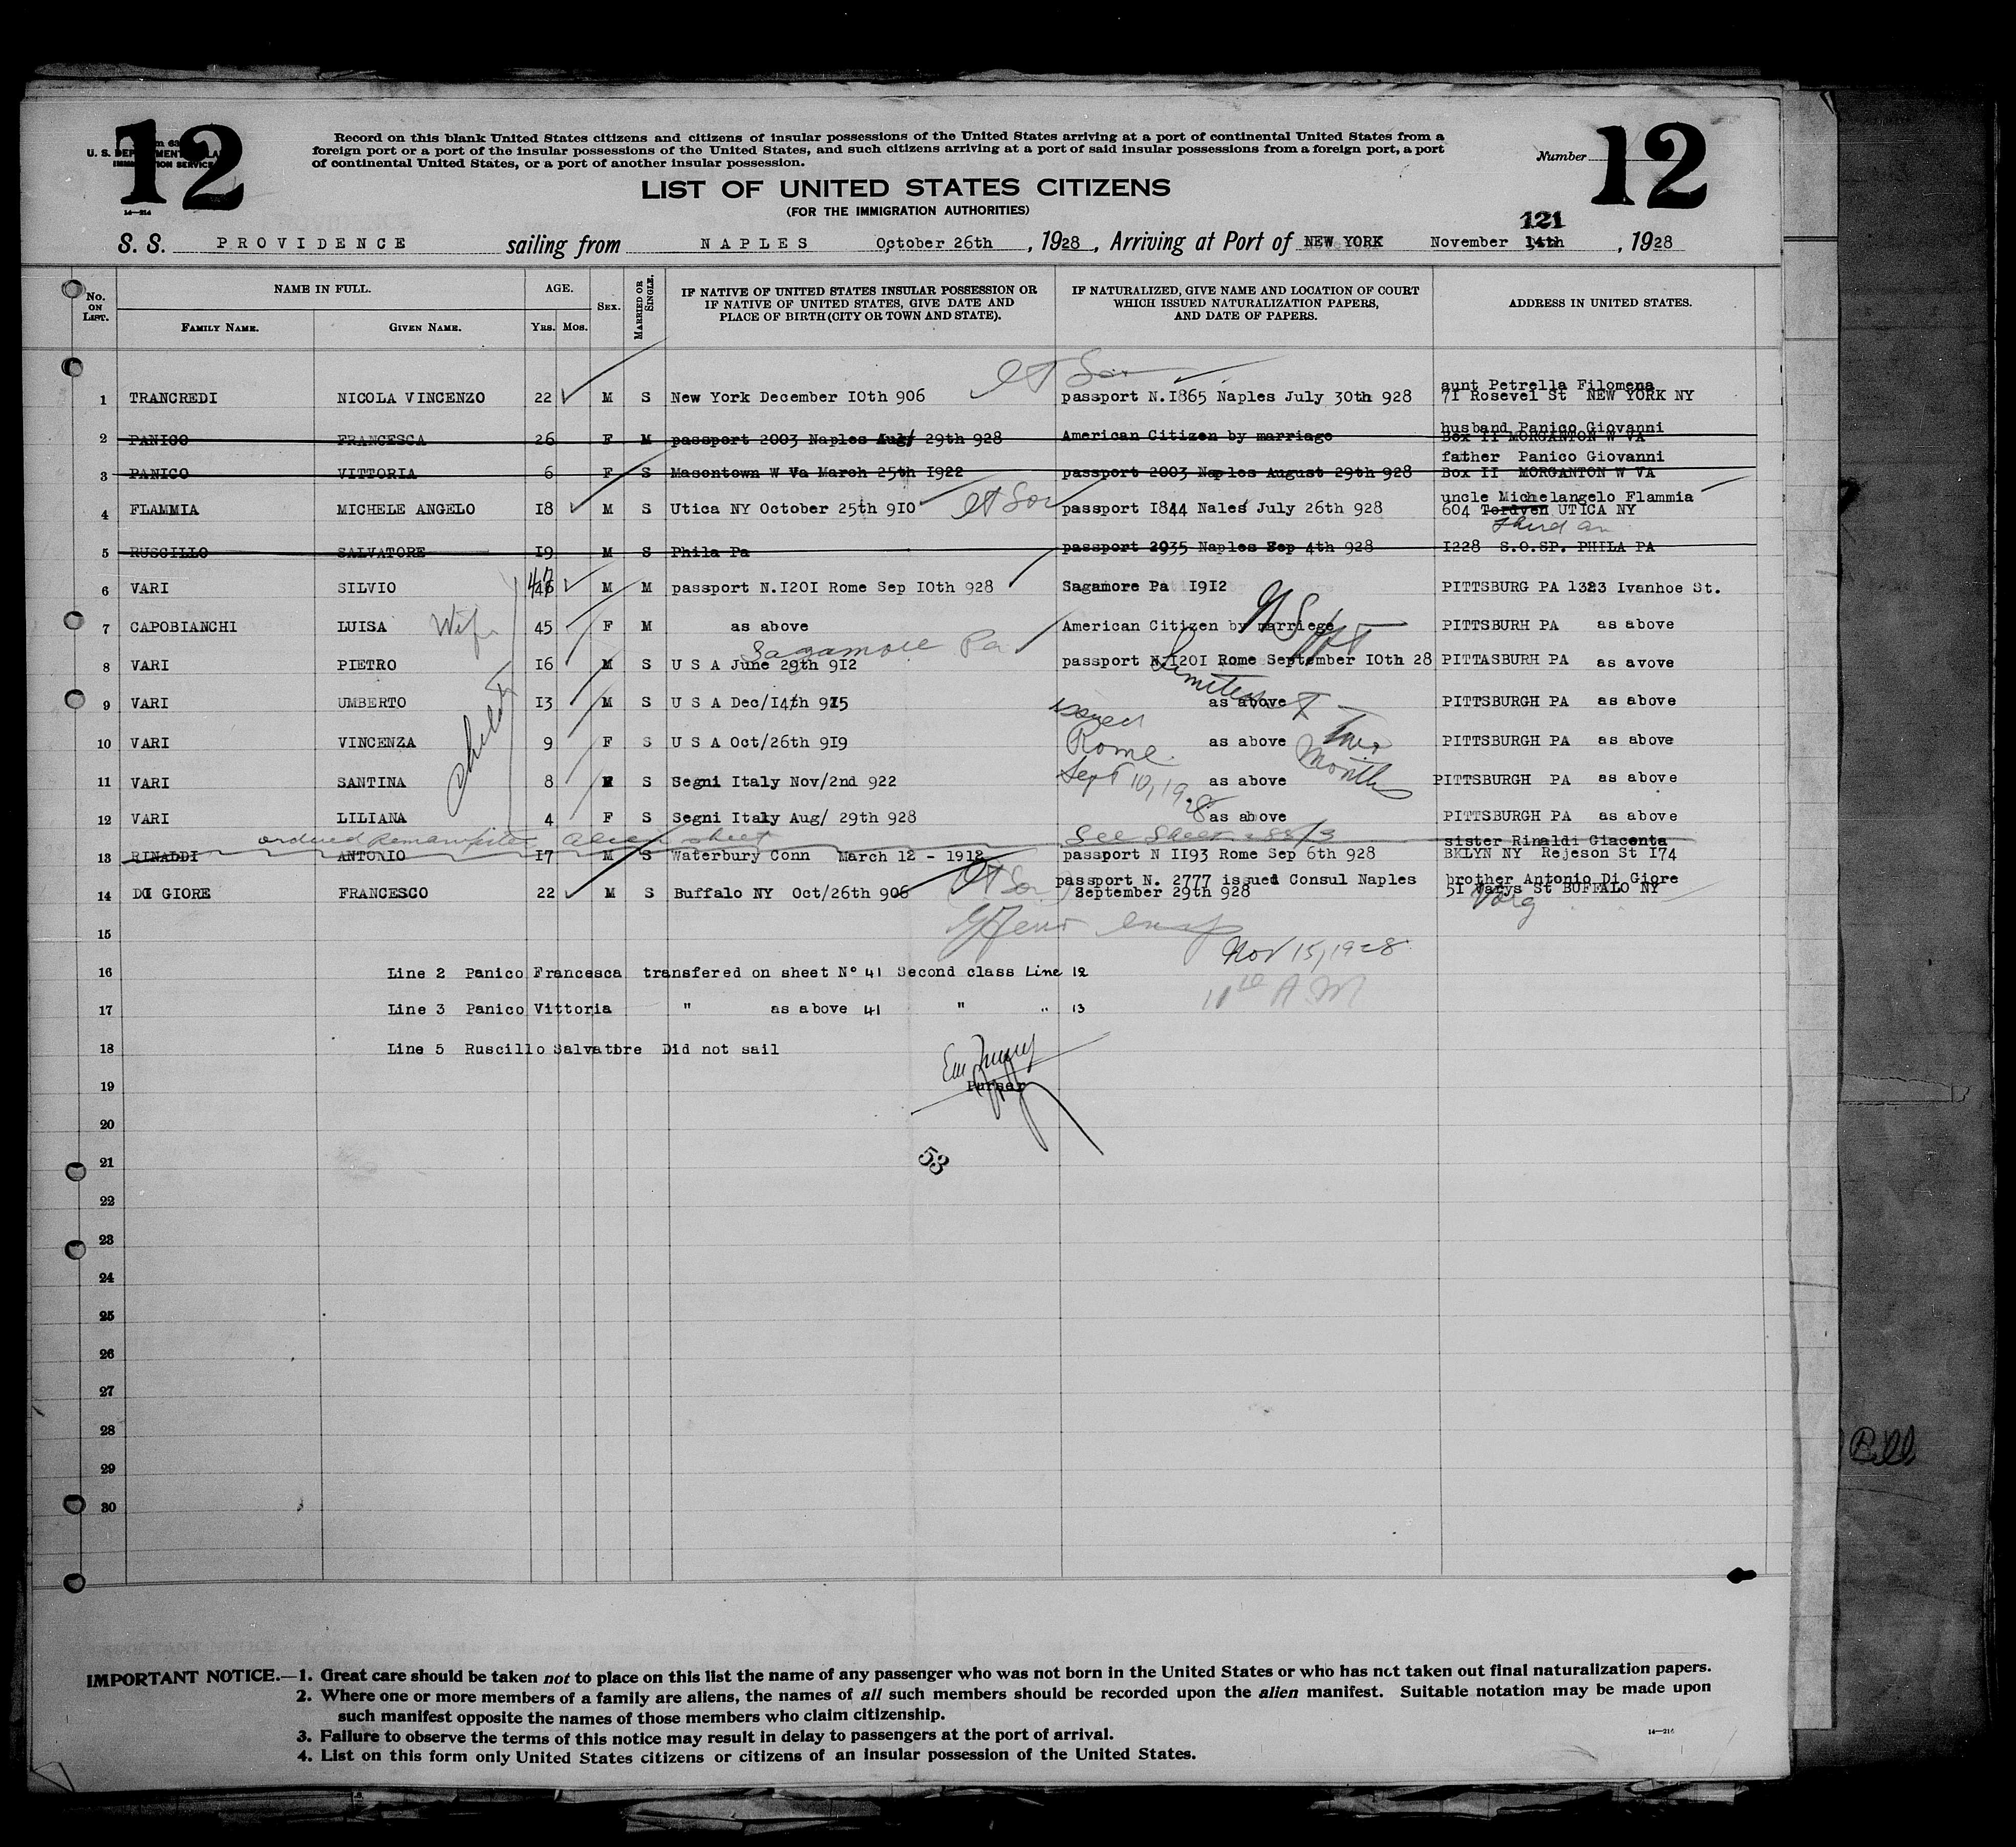 12
12
U. S. DEPARTMENT
IMMIGRATION SERVICE
14—214
Record on this blank United States citizens and citizens of insular possessions of the United States arriving at a port of continental United States from a
foreign port or a port of the insular possessions of the United States, and such citizens arriving at a port of said insular possessions from a foreign port, a port
of continental United States, or a port of another insular possession.
Number
LIST OF UNITED STATES CITIZENS
(FOR THE IMMIGRATION AUTHORITIES)
121
S. S. PROVIDENCE sailing from NAPLES October 26th , 1928 , Arriving at Port of NEW YORK November 14th , 1928
No. ON LIST. NAME IN FULL. AGE. SEX. MARRIED OR SINGLE. IF NATIVE OF UNITED STATES INSULAR POSSESSION OR IF NATIVE OF UNITED STATES, GIVE DATE AND PLACE OF BIRTH (CITY OR TOWN AND STATE). IF NATURALIZED, GIVE NAME AND LOCATION OF COURT WHICH ISSUED NATURALIZATION PAPERS, AND DATE OF PAPERS. ADDRESS IN UNITED STATES.
FAMILY NAME. GIVEN NAME. YRS. MOS.
aunt Petrella Filomena
1 TRANCREDI NICOLA VINCENZO 22 M S New York December 10th 906 passport N.1865 Naples July 30th 928 71 Rosevel St NEW YORK NY
husband Panico Giovanni
2 PANICO FRANCESCA 26 F M passport 2003 Naples Aug/ 29th 928 American Citizen by marriage Box II MORGANTON W VA
father Panico Giovanni
3 PANICO VITTORIA 6 F S Masontown W Va March 25th 1922 passport 2003 Naples August 29th 928 Box II MORGANTON W VA
uncle Michelangelo Flammia
4 FLAMMIA MICHELE ANGELO 18 M S Utica NY October 25th 910 passport 1844 Nales July 26th 928 604 Tordyen UTICA NY
5 RUSCILLO SALVATORE 19 M S Phila Pa passport 2035 Naples Sep 4th 928 1228 S.O.SP. PHILA PA
6 VARI SILVIO 47 M M passport N.1201 Rome Sep 10th 928 Sagamore Pa 1912 PITTSBURG PA 1323 Ivanhoe St.
7 CAPOBIANCHI LUISA Wife 45 F M as above American Citizen by marriege PITTSBURH PA as above
Sagamore Pa
8 VARI PIETRO 16 M S U S A June 29th 912 passport N.1201 Rome September 10th 28 PITTASBURH PA as avove
Limited
9 VARI UMBERTO 13 M S U S A Dec/14th 915 as above PITTSBURGH PA as above
issued
10 VARI VINCENZA 9 F S U S A Oct/26th 919 Rome as above Two Months PITTSBURGH PA as above
11 VARI SANTINA 8 F S Segni Italy Nov/2nd 922 Sept 10, 1928 as above PITTSBURGH PA as above
12 VARI LILIANA 4 F S Segni Italy Aug/ 29th 928 as above PITTSBURGH PA as above
alien sheet See Sheet
sister Rinaldi Giacenta
13 RINALDI ANTONIO 17 M S Waterbury Conn March 12 - 1912 passport N 1193 Rome Sep 6th 928 BKLYN NY Rejeson St 174
passport N. 2777 issued Consul Naples brother Antonio Di Giore
14 DI GIORE FRANCESCO 22 M S Buffalo NY Oct/26th 906 September 29th 928 51 Varys St BUFFALO NY
15
Nov 15, 1928
16 Line 2 Panico Francesca transfered on sheet N° 41 Second class Line 12
11 A M
17 Line 3 Panico Vittoria " as above 41 " " 13
18 Line 5 Ruscillo Salvatore Did not sail
19 Purser
20
53
21
22
23
24
25
26
27
28
29
30
IMPORTANT NOTICE.—1. Great care should be taken not to place on this list the name of any passenger who was not born in the United States or who has not taken out final naturalization papers.
2. Where one or more members of a family are aliens, the names of all such members should be recorded upon the alien manifest. Suitable notation may be made upon
such manifest opposite the names of those members who claim citizenship.
3. Failure to observe the terms of this notice may result in delay to passengers at the port of arrival.
4. List on this form only United States citizens or citizens of an insular possession of the United States.